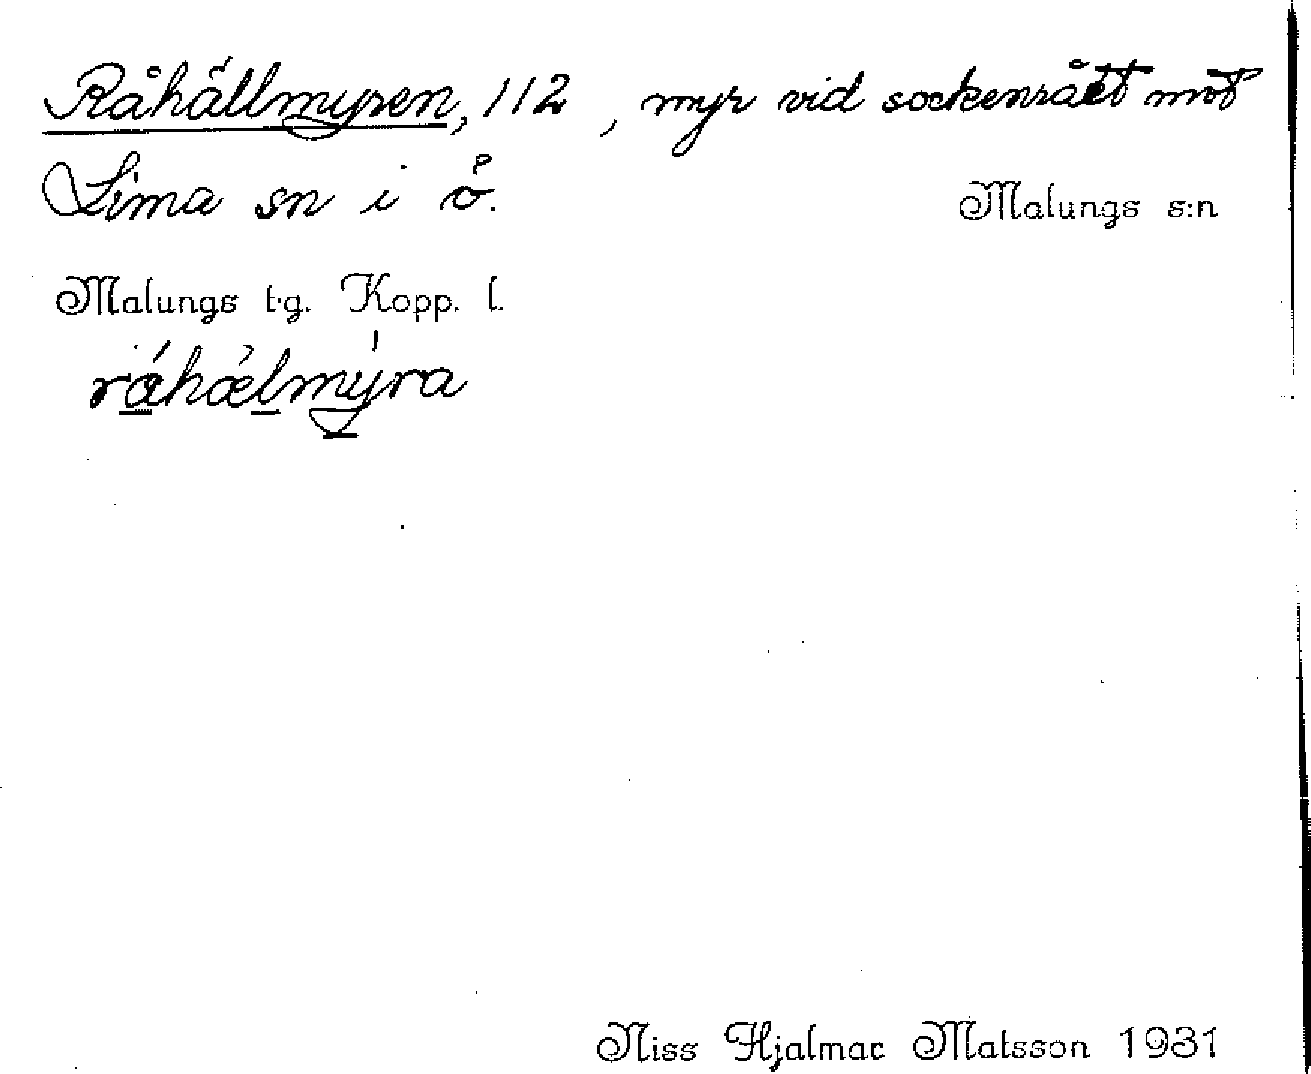 Råhällmyren, 112 , myr vid sockenrået mot
Lima sn i ö.
Malungs s:n
Malungs t.g. Kopp. l.
råhælmyra
Niss Hjalmar Matsson 1931